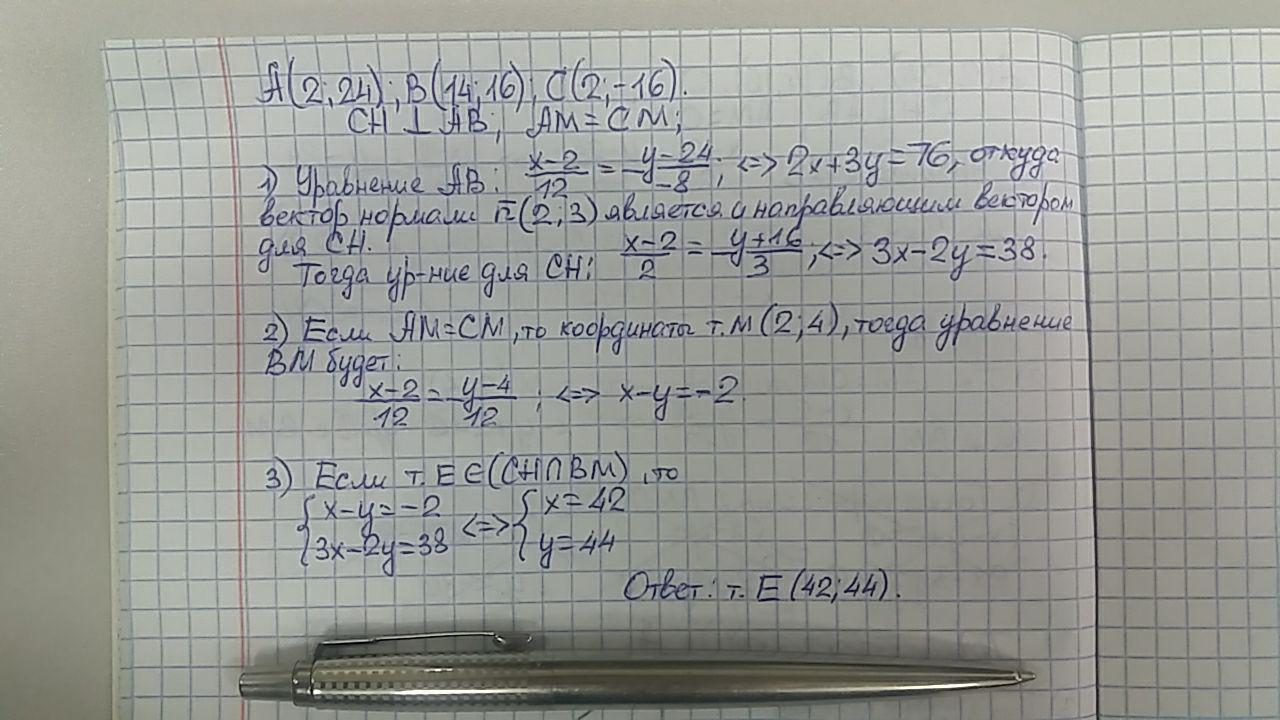 A(2;24); B(14;16); C(2;-16).
CH⊥AB; AM=CM;
1) Уравнение AB: (x-2)/12 = (y-24)/-8; <=> 2x+3y=76, откуда
вектор нормали n̄(2;3) является и направляющим вектором
для CH.
Тогда ур-ние для CH: (x-2)/2 = (y+16)/3; <=> 3x-2y=38.
2) Если AM=CM, то координаты т. M(2;4), тогда уравнение
BM будет:
(x-2)/12 = (y-4)/12; <=> x-y=-2.
3) Если т. E∈(CH∩BM), то
{x-y=-2 <=> {x=42
{3x-2y=38 {y=44
Ответ: т. E(42;44).